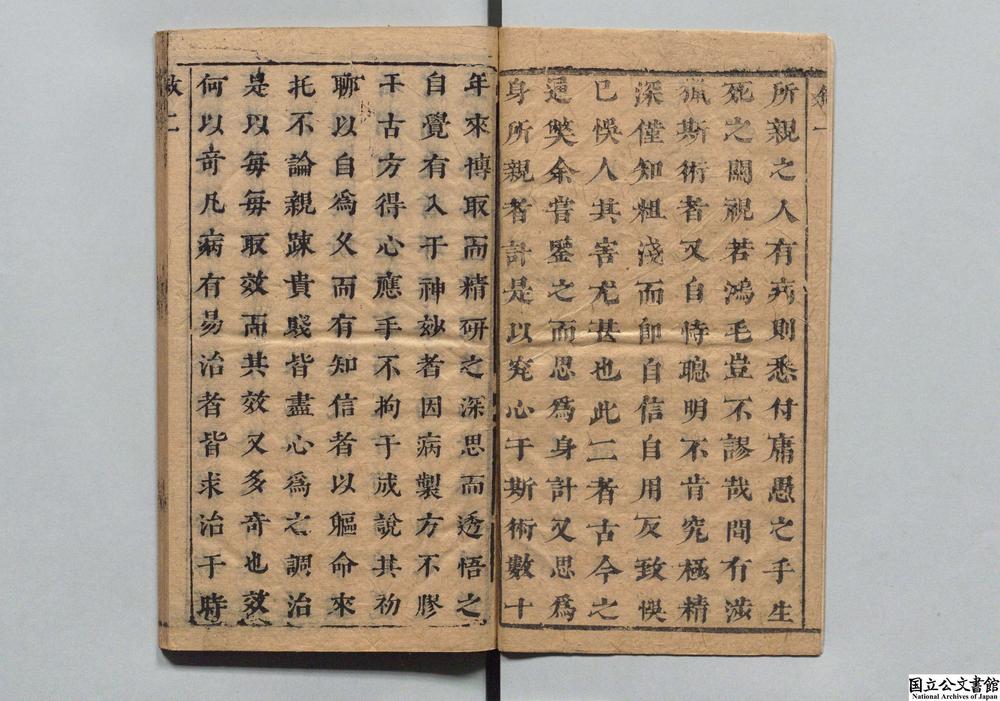 所親之人有病則悉付庸愚之手生
死之關視若鴻毛豈不謬哉間有涉
獵斯術者又自恃聰明不肯究極精
深僅知粗淺而卽自信自用反致悞
已悞人其害尤甚也此二者古今之
通獘余嘗鑒之而思爲身計又思爲
身所親者計是以究心于斯術數十
年來博取而精研之深思而透悟之
自覺有入于神妙者因病製方不膠
于古方得心應手不拘于成說其初
聊以自爲久而有知信者以軀命來
托不論親踈貴賤皆盡心爲之調治
是以每每取效而其效又多奇也效
何以奇凡病有易治者皆求治于時
敘二
国立公文書館
National Archives of Japan